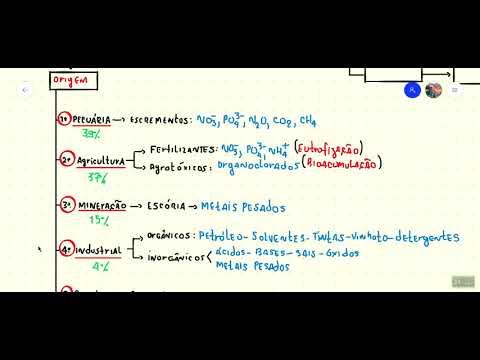 Origem
1º PECUÁRIA → ESCREMENTOS: NO₃⁻, PO₄³⁻, N₂O, CO₂, CH₄
39%
FERTILIZANTES: NO₃⁻, PO₄³⁻, NH₄⁺ (Eutrofização)
2º Agricultura
AGROTÓXICOS: ORGANOCLORADOS (BIOACUMULAÇÃO)
37%
3º MINERAÇÃO → ESCÓRIA → METAIS PESADOS
15%
ORGÂNICOS: PETRÓLEO - SOLVENTES - TINTAS - VINHOTO - detergentes
4º industrial
INORGÂNICOS ÁCIDOS - BASES - SAIS - ÓXIDOS
4%
METAIS PESADOS